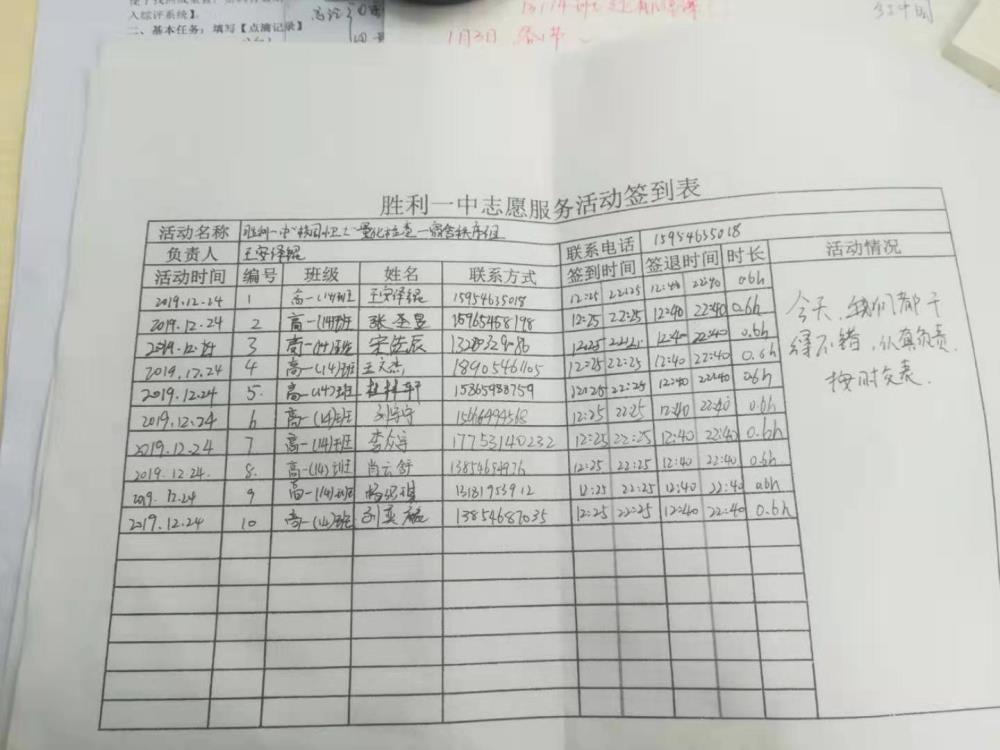 入综评系统】.
二、基本任务：填写【点滴记录】
1月3日
胜利一中志愿服务活动签到表
活动名称 胜利一中"校园卫士"量化检查-宿舍秩序组 联系电话 15954635018 活动情况
负责人 王安译锟
活动时间 编号 班级 姓名 联系方式 签到时间 签退时间 时长
2019.12.24 1 高一(14)班 王安译锟 15954635018 12:25 22:25 12:40 22:40 0.6h
2019.12.24 2 高一(14)班 张丞昱 15965458198 12:25 22:25 12:40 22:40 0.6h
2019.12.24 3 高一(14)班 宋佐辰 12:25 12:40 22:40 0.6h
2019.12.24 4 高一(14)班 王文杰 18905461105 12:25 22:25 12:40 22:40 0.6h
2019.12.24 5. 高一(14)班 15865988759 12:25 22:25 12:40 22:40 0.6h
2019.12.24 6 高一(14)班 12:25 22:25 12:40 22:40 0.6h
2019.12.24 7 高一(14)班 17753140232 12:25 22:25 12:40 22:40 0.6h
2019.12.24. 8. 高一(14)班 尚云舒 12:25 22:25 12:40 22:40 0.6h
2019.12.24 9 高一(14)班 13181953912 12:25 22:25 12:40 22:40 0.6h
2019.12.24 10 高一(14)班 13854687035 12:25 22:25 12:40 22:40 0.6h
今天，我们都干
得不错，认真负责.
按时交表.